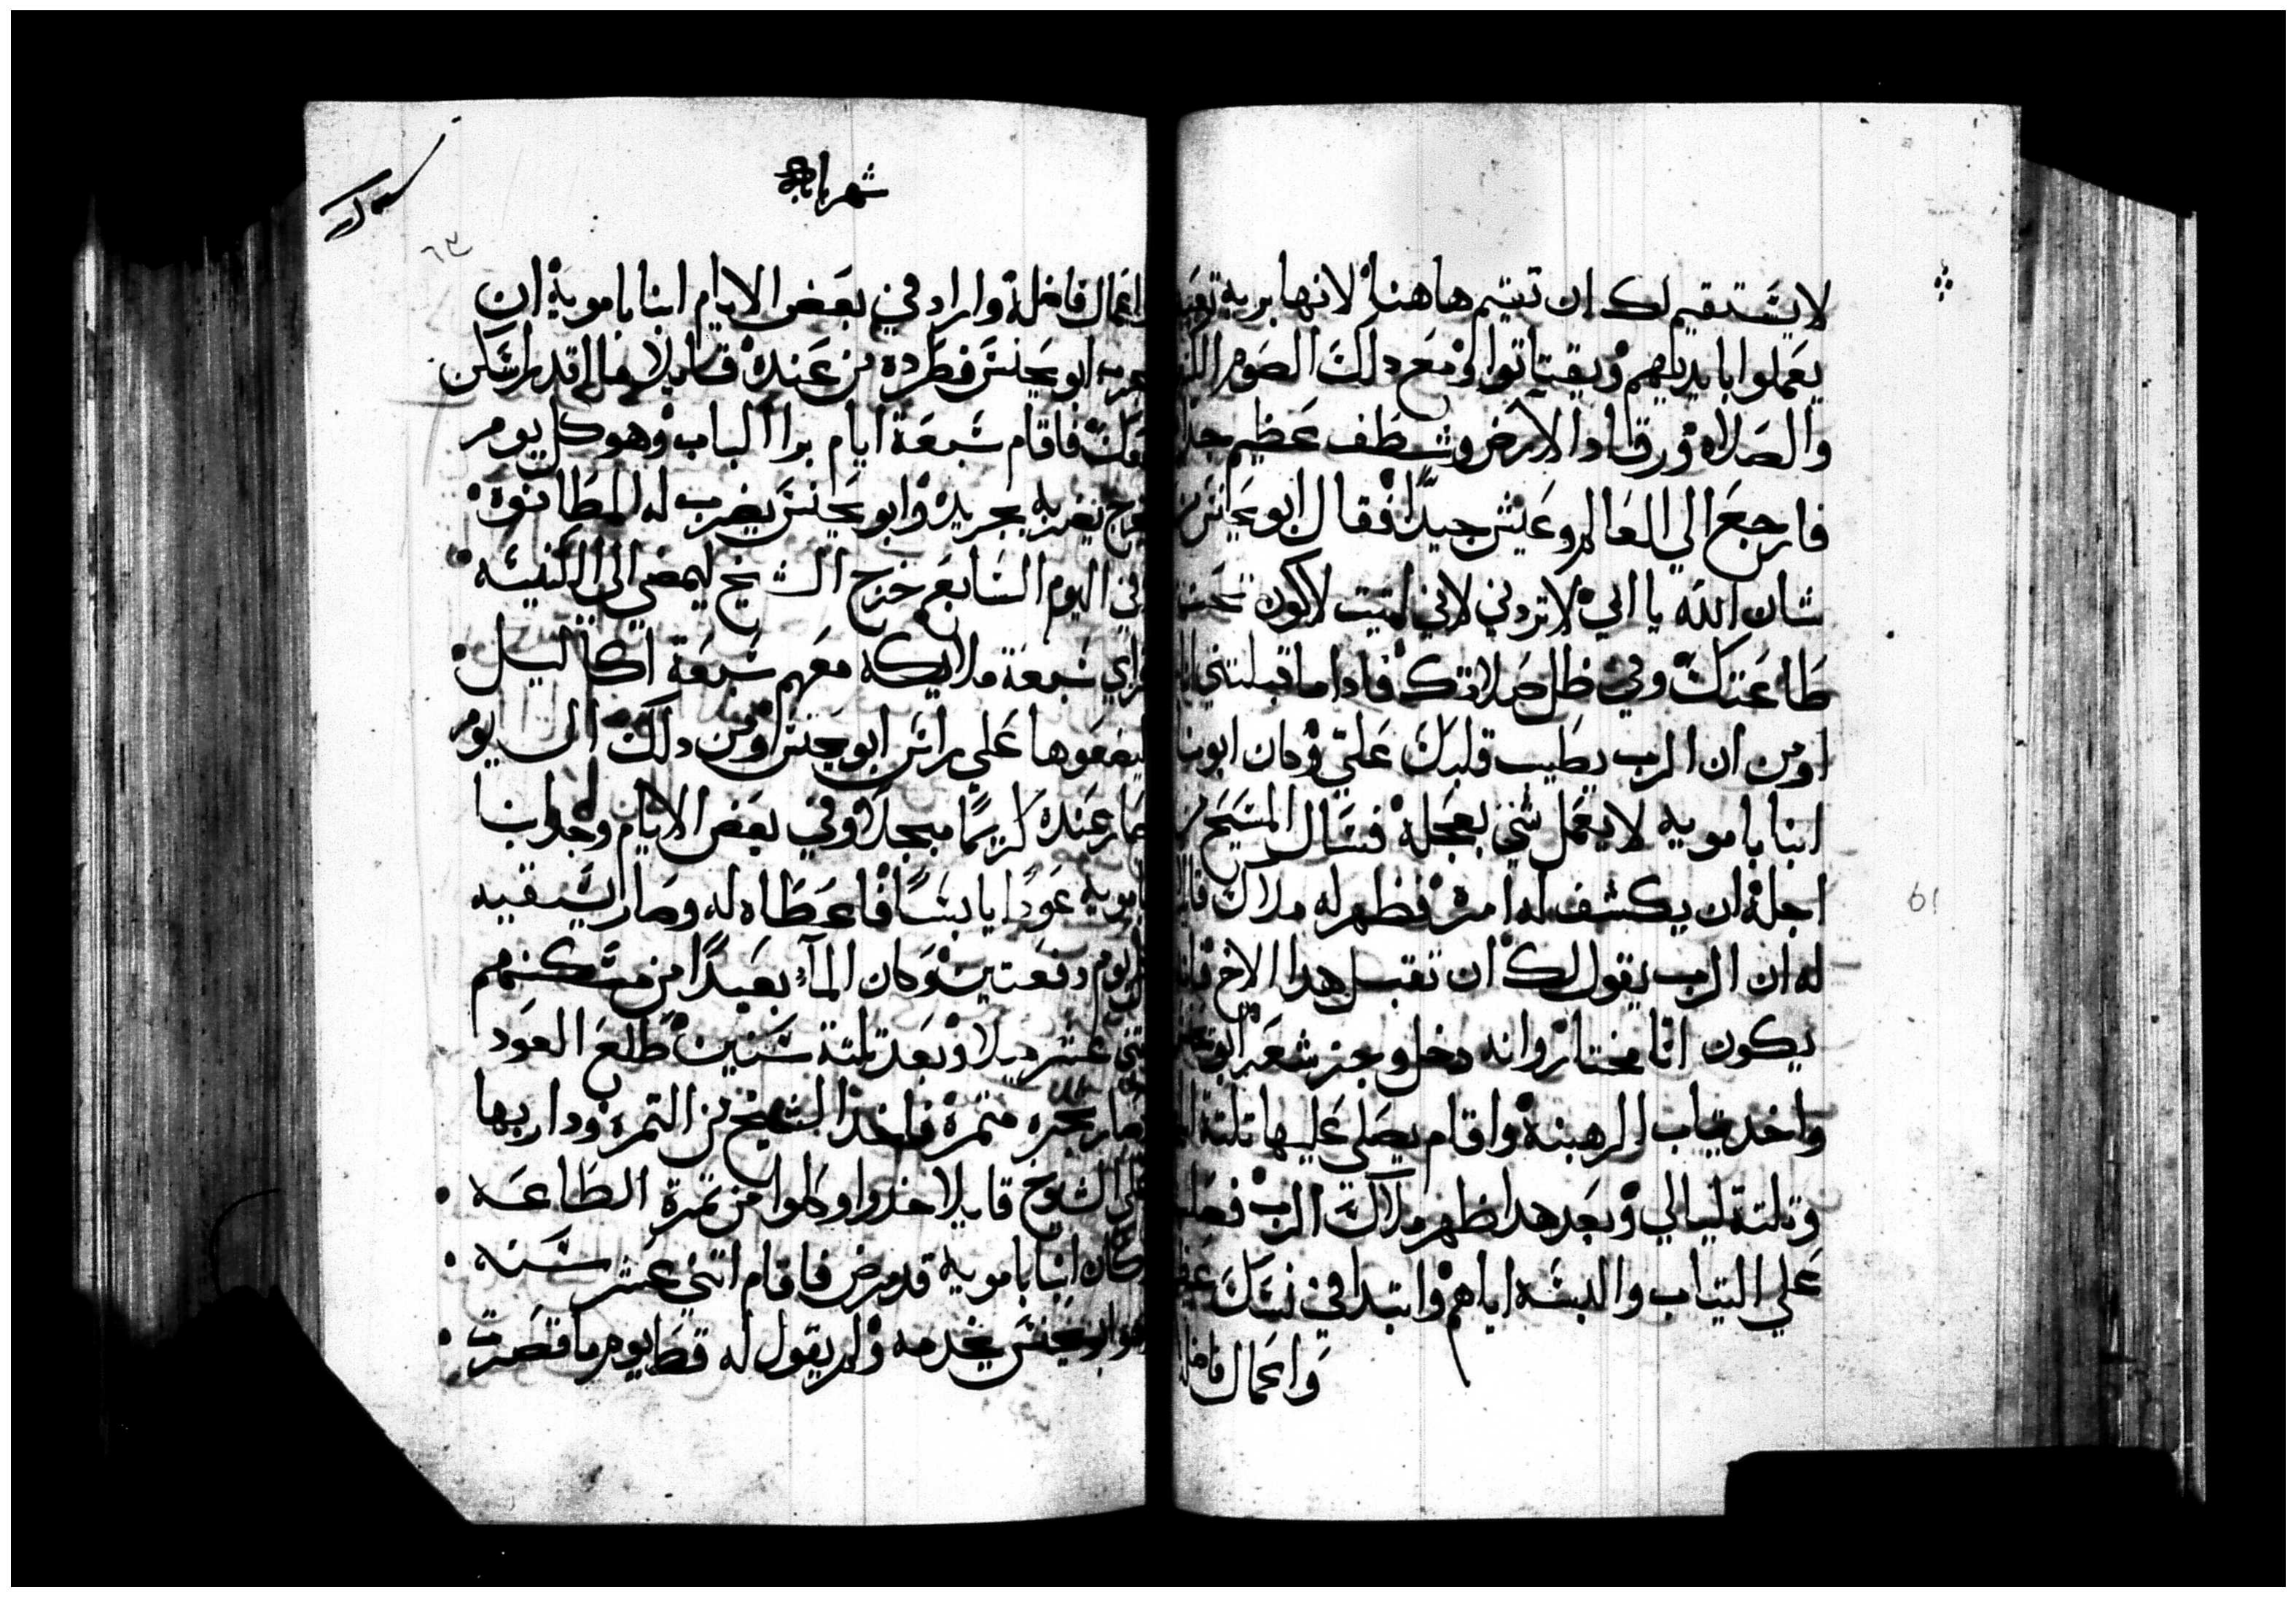 لا يستقيم لك ان تقيم هاهنا لانها برية تعب
يعملوا بايديهم ويقتاتوا ومع دلك الصوم
والصلاه ورقاد الارض وشظف عظيم جدا
فارجع الي العالم وعيش جيدا فقال ابو يحنس
شان الله يا ابي لا تردني لاني اتيت لاكون تحت
طاعتك وفي ظل صلاتك فادا ما قبلتني انا
اومن ان الرب يطيب قلبك علي وكان ابونا
انبا بامويه لا يعمل شي بعجلة فسال المسيح من
اجله ان يكشف له امره فظهر له ملاك
له ان الرب يقول لك ان تقبل هدا الاخ
يكون انا مختار وانه دخل وجز شعر ابو
واخد تياب الرهبنه واقام يصلي عليها تلتة
وتلتة ليالي وبعد هدا ظهر ملاك الرب
علي التياب والبسه اياهم وابتدا في نسك
واعمال فاضله
شهر بابه
٦٣
واعمال فاضلة واراد في بعض الايام انبا بامويه ان
يجرب ابو يحنس فطرده من عنده قايلا ما اقدر اسكن
معك فاقام سبعة ايام برا الباب وهو كل يوم
يخرج يضربه بجريده وابو يحنس يضرب له المطانوة
في اليوم السابع خرج الشيخ ليمضي الي الكنيسه
فراي سبعة ملايكه معهم سبعة اكاليل
ليضعوها علي راس ابو يحنس ومن دلك اليوم
صار عنده كريما مبجلا وفي بعض الايام وجد انبا
بامويه عودا يابسا فاعطاه له وصار يسقيه
كل يوم دفعتين وكان المآء بعيدا من مسكنهم
اتني عشر ميلا وبعد تلتة سنين طلع العود
وصار شجره متمرة فاخد الشيخ من التمرة ودار بها
علي الشيوخ قايلا خدوا وكلوا من تمرة الطاعه
وكان انبا بامويه قد مرض فاقام اتني عشر سنه
وابو يحنس يخدمه ولم يقول له قط يوم ما قصرت